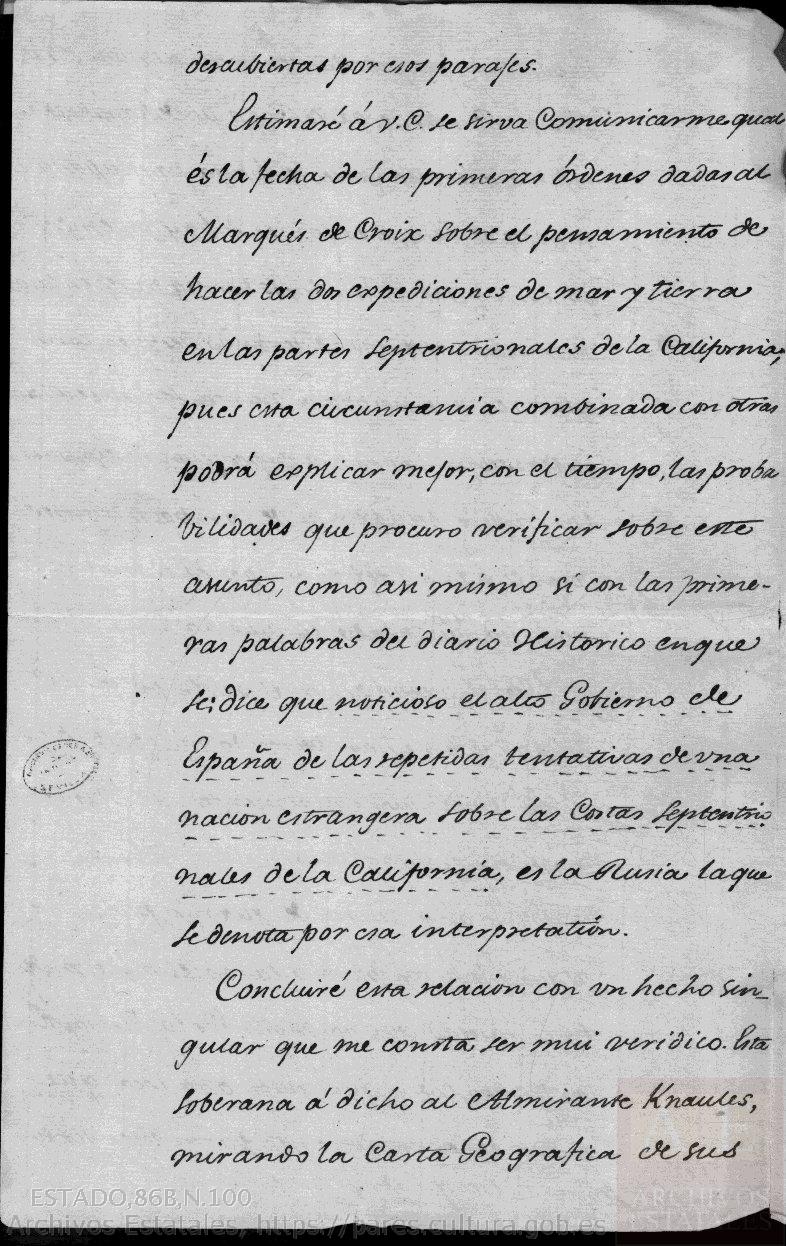 descubiertas por esos parajes.
Estimaré á V.C. se sirva Comunicarme qual
és la fecha de las primeras órdenes dadas al
Marqués de Croix sobre el pensamiento de
hacer las dos expediciones de mar y tierra
en las partes Septentrionales de la California,
pues esta circunstancia combinada con otras
podrá explicar mejor, con el tiempo, las proba
bilidades que procuro verificar sobre este
asunto, como asi mismo si con las prime-
ras palabras del diario Historico en que
se dice que noticioso el alto Gobierno de
España de las repetidas tentativas de una
nacion estrangera sobre las Costas Septentrio
nales de la California, es la Rusia la que
se denota por esa interpretatión.
Concluiré esta relacion con un hecho sin-
gular que me consta ser mui veridico. Esta
soberana á dicho al Almirante Knaules,
mirando la Carta Geografica de sus
ESTADO,86B,N.100
Archivos Estatales, https://pares.cultura.gob.es
ARCHIVOS
ESTATALES